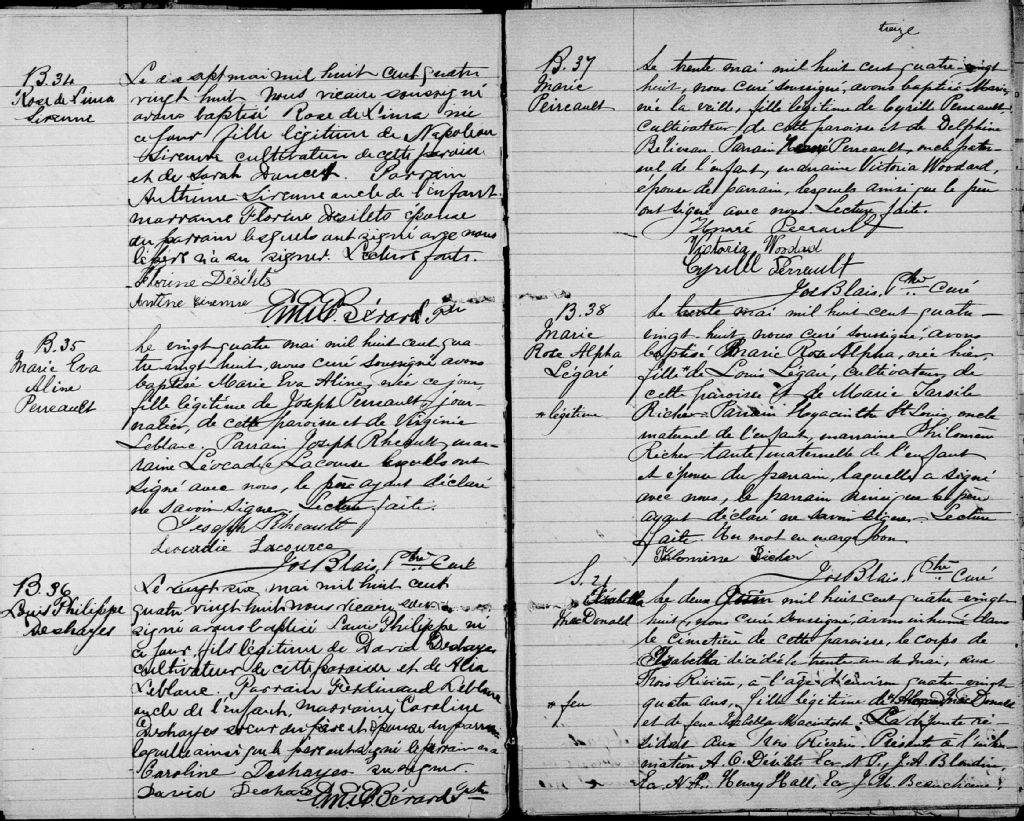 B. 34
Rose de Lima
Sirenne
Le dix sept mai mil huit cent quatre
vingt huit nous vicaire soussigné
avons baptisé Rose de Lima née
ce jour fille légitime de Napoleon
Sirenne cultivateur de cette paroisse
et de Sarah Doucet. Parrain
Anthime Sirenne oncle de l'enfant
marraine Florine Désilets épouse
du parrain lesquels ont signé avec nous
le père n'a su signer. Lecture faite.
Florine Désilets
Antine sirenne
Bérard Ptre
B. 35
Marie Eva
Aline
Perreault
Le vingt quatre mai mil huit cent qua
tre vingt huit, nous curé soussigné avons
baptisé Marie Eva Aline, née ce jour,
fille légitime de Joseph Perreault, jour-
nalier, de cette paroisse et de Virginie
Leblanc. Parrain Joseph Rheault, mar-
raine Léocadie Lacourse lesquels ont
signé avec nous, le père ayant déclaré
ne savoir signer. Lecture faite.
Joseph Rheault
Leocadie Lacource
Jos Blais, Ptre Curé
B. 36
Louis Philippe
Deshayes
Le vingt six mai mil huit cent
quatre vingt huit nous vicaire sous-
signé avons baptisé Louis Philippe né
ce jour, fils légitime de David Deshayes
cultivateur de cette paroisse et de
Leblanc. Parrain Ferdinand Leblanc
oncle de l'enfant, marraine Caroline
Deshayes soeur du père et épouse du parrain
laquelle ainsi que le père ont signé le parrain n'a
Caroline Deshayes su signer.
David Deshaies
Bérard Ptre
treize
B. 37
Marie
Perreault
Le trente mai mil huit cent quatre-vingt
huit, nous curé soussigné, avons baptisé Marie,
née la veille, fille légitime de Cyrille Perreault,
cultivateur de cette paroisse et de Delphine
Beliveau Parrain Honoré Perreault, oncle pater-
nel de l'enfant, marraine Victoria Woodard,
épouse du parrain, lesquels ainsi que le père
ont signé avec nous. Lecture faite.
Honoré Perrault
Victoria Woodard
Cyrille Perrault
Jos Blais, Ptre Curé
B. 38
Marie
Rose Alpha
Légaré
* légitime
Le trente mai mil huit cent quatre-
vingt huit, nous curé soussigné, avons
baptisé Marie Rose Alpha, née hier,
fille * de Louis Légaré, cultivateur de
cette paroisse et de Marie Tarsile
Richer. Parrain Hyacinthe St Louis, oncle
maternel de l'enfant, marraine Philomène
Richer tante maternelle de l'enfant
et épouse du parrain, laquelle a signé
avec nous, le parrain ainsi que le père
ayant déclaré ne savoir signer. Lecture
faite. Un mot en marge bon.
Filomine Richer
Jos Blais, Ptre Curé
S. 21
Isabella
MacDonald
* feu
Le deux Juin mil huit cent quatre vingt
huit, nous curé soussigné, avons inhumé dans
le cimetière de cette paroisse, le corps de
Isabella décédée le trente un de Mai, aux
Trois Rivières, à l'âge d'environ quatre vingt
quatre ans, fille légitime de * MacDonald
et de feue Isabella Macintosh. La défunte ré-
sidait aux Trois Rivières. Présents à l'inhu-
mation A. O. Désilets Ecr N.P., J. A. Blondin,
Ecr. N.P. Henry Hall, Ecr J. H. Beauchaine,